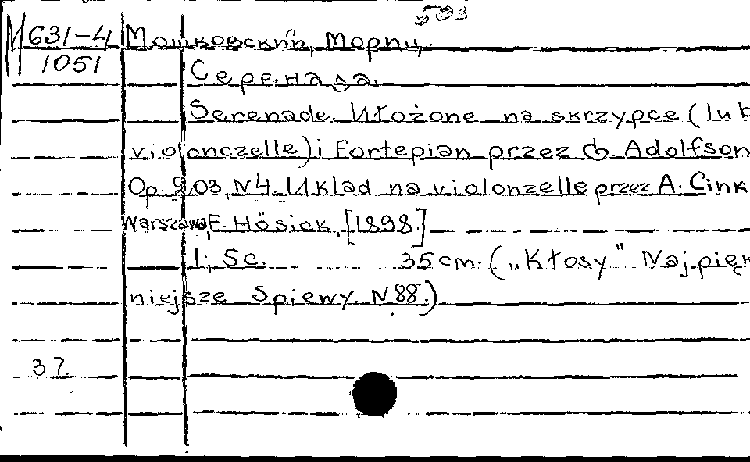 503
М 631-4 Мошковский, Мориц.
1051 Серенада.
Serenade. Ułożone na skrzypce (lub
violonczelle) i Fortepian przez Adolfson
Op. N4. Układ na violonzelle przez A. Cink
Warszawa, F. Hösick, [1898.]
1; Sc. 35 cm. („Kłosy" Naj.pięk
niejsze Spiewy N 88.)
37